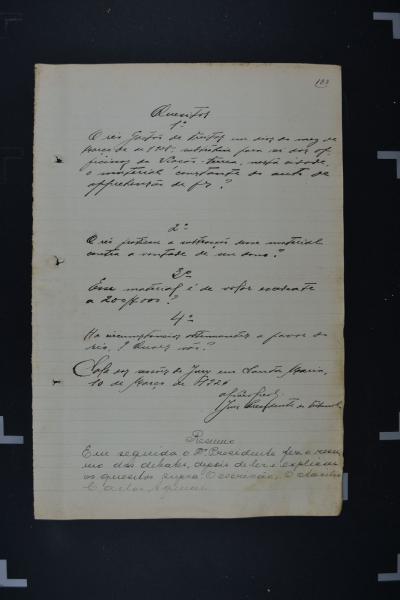 Quesitos
1º
O réo Gastão de Freitas em dias do mez de
Março de subtrahiu para si das of-
ficinas da Viação-ferrea, nesta cidade,
o material constante do auto de
apprehensão de fs ?
2º
O réo praticou a subtracção desse material
contra a vontade de seu dono?
3º
Esse material é de valor excedente
a 200$000?
4º
Ha circumstancias attenuantes a favor do
réo, ? Quaes são?
Sala das sessões do Jury em Santa Maria,
10 de Março de 1926
Juiz Presidente do Tribunal
Resumo
Em seguida o Dr. Presidente fez o resu-
mo dos debates, depois de ler e explicar
os quesitos supra. O escrivão,